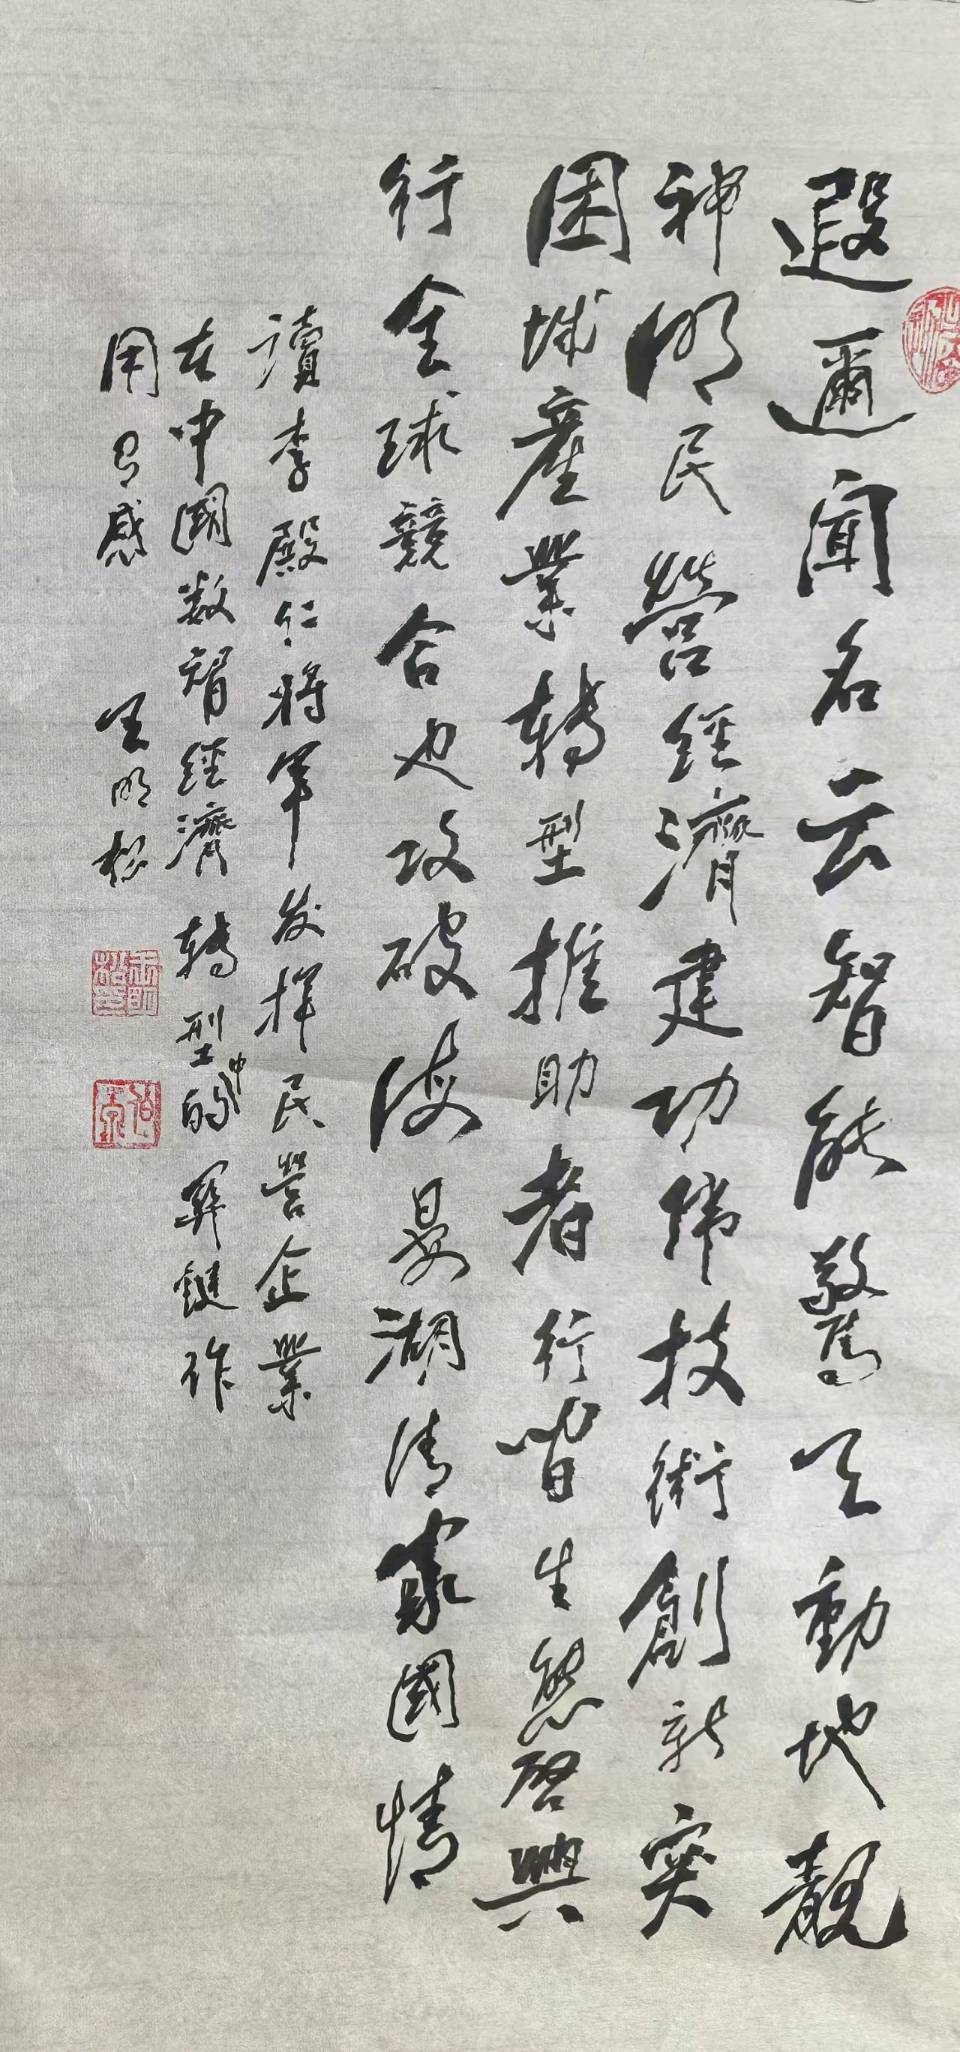 遐邇聞名云智能驚天動地靚
神明民營經濟建功偉技術創新突
困城產業轉型推助者行皆生態啓興
行全球競合也攻破海晏湖清家國情
讀李殿仁將軍发揮民營企業
在中國数智經濟轉型中的關鍵作
用有感 王明松